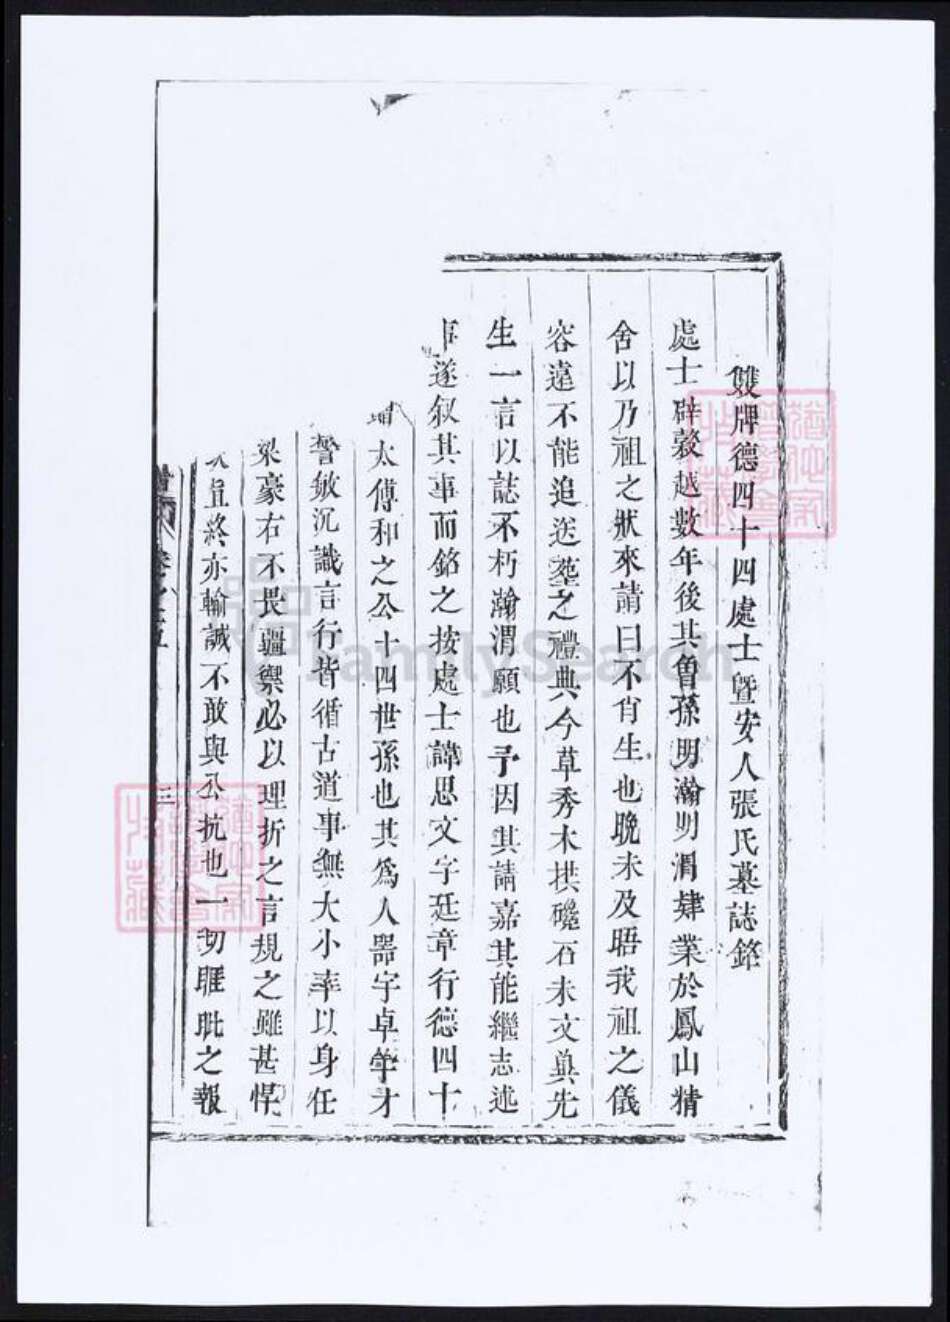 雙牌德四十四處士暨安人張氏墓誌銘
處士辟穀越數年後其魯孫明瀚明渭肄業於鳳山精
舍以乃祖之狀來請曰不肖生也晚未及晤我祖之儀
容遠不能追送葬之禮典今草秀木拱礲石未文與先
生一言以誌不朽瀚渭願也予因其請嘉其能繼志述
事遂叙其事而銘之按處士諱思文字廷章行德四十
太傅和之公十四世孫也其為人器宇卓犖才
警敏沉識言行皆循古道事無大小率以身任
梁豪右不畏疆禦必以理折之言規之雖甚悍
且終亦輸誠不敢與公抗也一切睚眦之報
卷之五
三
FamilySearch